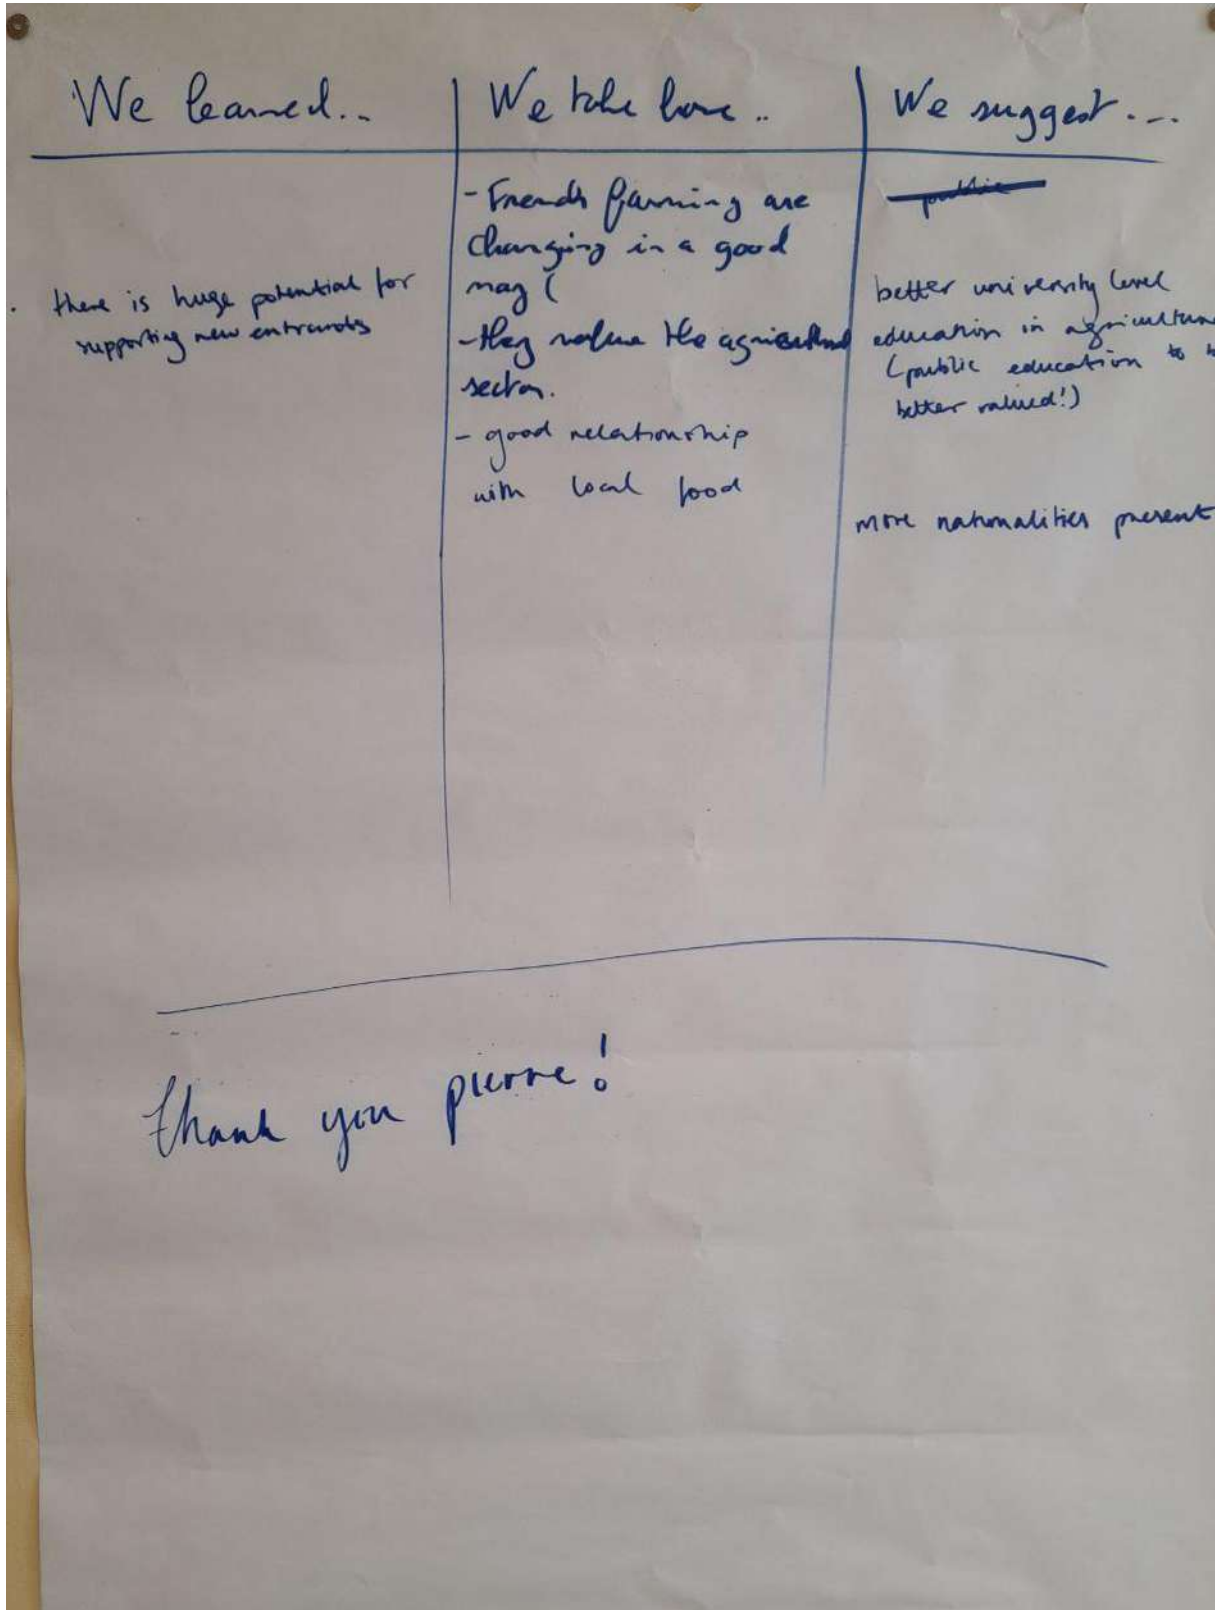 We learned...
We take home..
We suggest....
. there is huge potential for
supporting new entrants
- French farming are
changing in a good
way (
- they value the agricultural
sector.
- good relationship
with local food
better university level
education in agriculture
(public education to b
better valued!)
more nationalities present
thank you pierre!